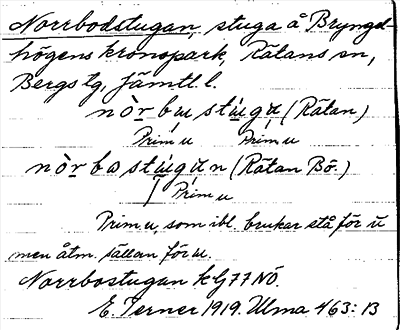 Norrbodstugan, stuga å Bryngel-
högens kronopark, Rätans sn,
Bergs tg, Jämtl. l.
nòr bu stúgu̯ (Rätan)
Prim u Prim u
nòr bo stúgu̯n (Rätan Bö.)
Prim u
Prim u, som ibl. brukar stå för ŭ
men åtm. sällan för u.
Norrbostugan kG77NÖ.
E. Terner 1919. Ulma 463: 13